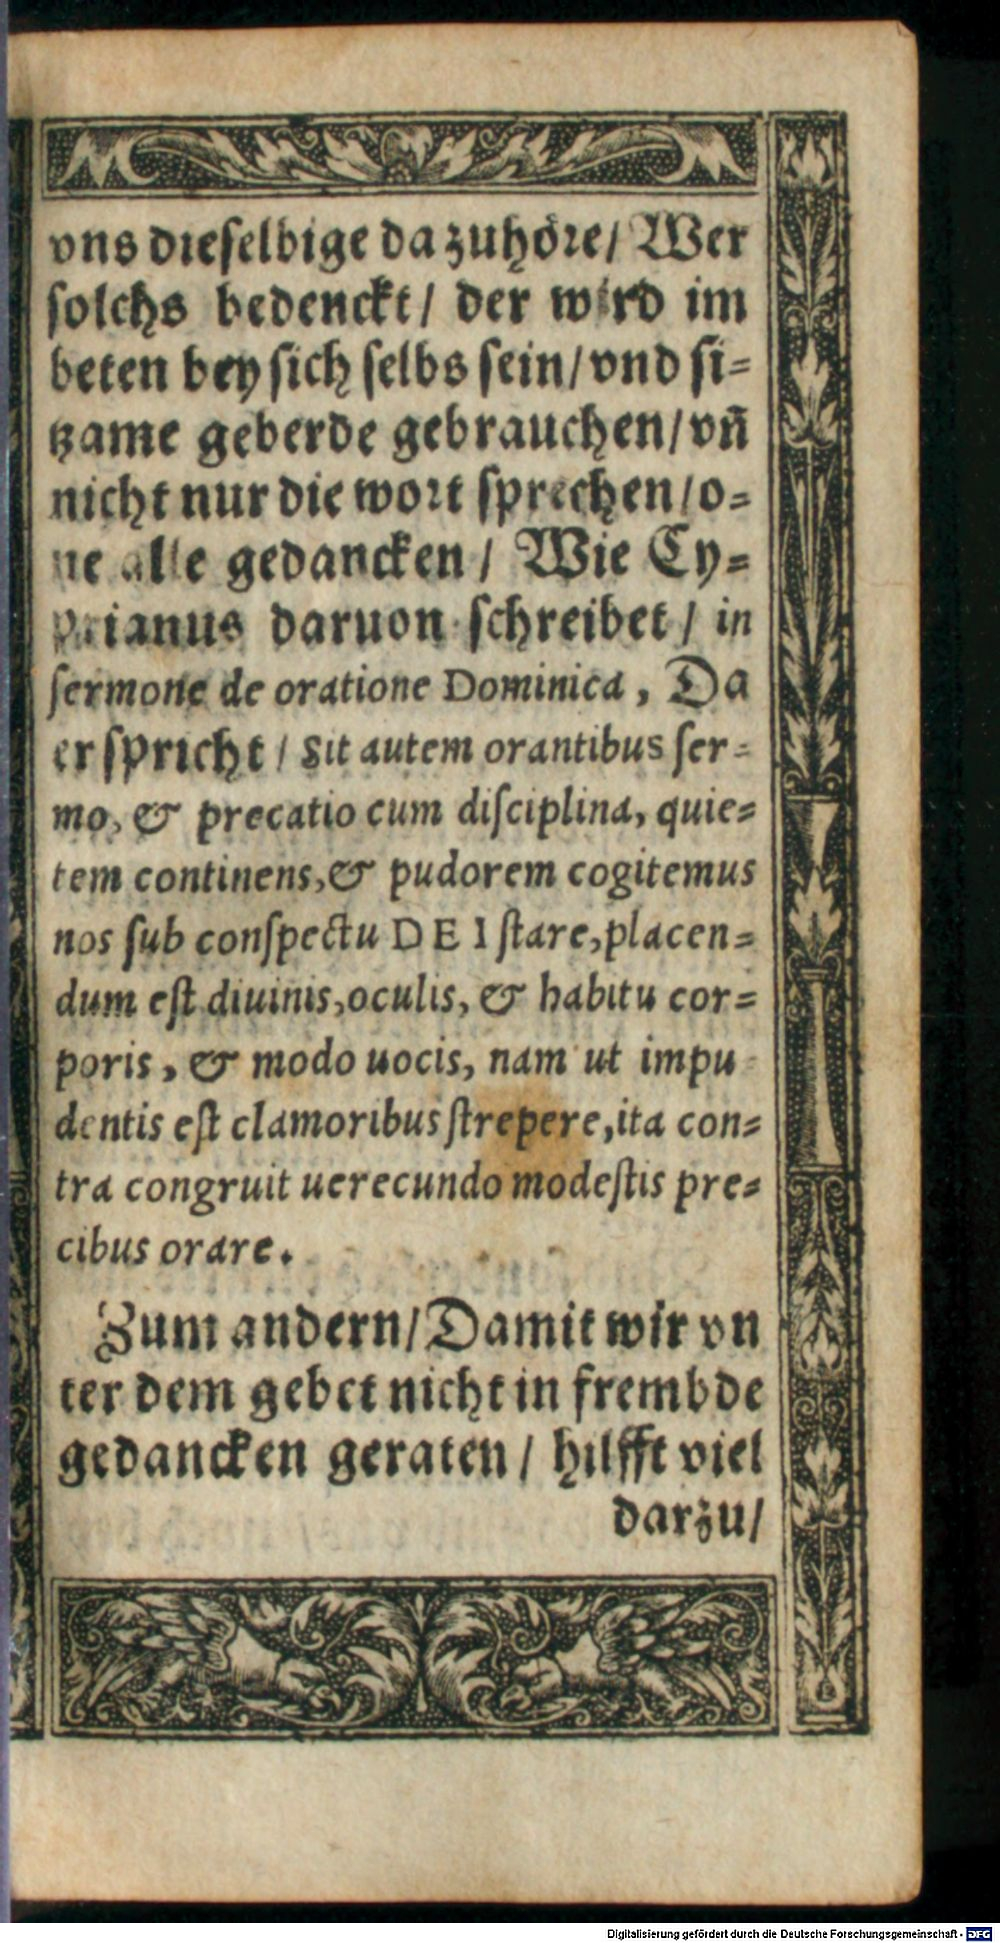 vns dieselbige da zuhöre/ Wer
solchs bedenckt/ der wird im
beten bey sich selbs sein/ vnd si=
tzame geberde gebrauchen/ vñ
nicht nur die wort sprechen/ o=
ne alle gedancken/ Wie Cy=
prianus daruon schreibet/ in
ſermone de oratione Dominica, Da
er spricht/ Sit autem orantibus ſer=
mo, & precatio cum diſciplina, quie=
tem continens, & pudorem cogitemus
nos ſub conſpectu DEI ſtare, placen=
dum eſt diuinis, oculis, & habitu cor=
poris, & modo uocis, nam ut impu
dentis eſt clamoribus ſtrepere, ita con=
tra congruit uerecundo modeſtis pre=
cibus orare.
Zum andern/ Damit wir vn
ter dem gebet nicht in frembde
gedancken geraten/ hilfft viel
darzu/
Digitalisierung gefördert durch die Deutsche Forschungsgemeinschaft - DFG